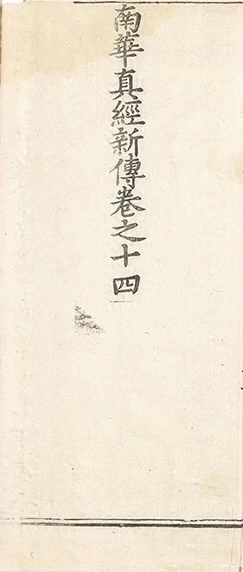 南華真經新傳卷之十四